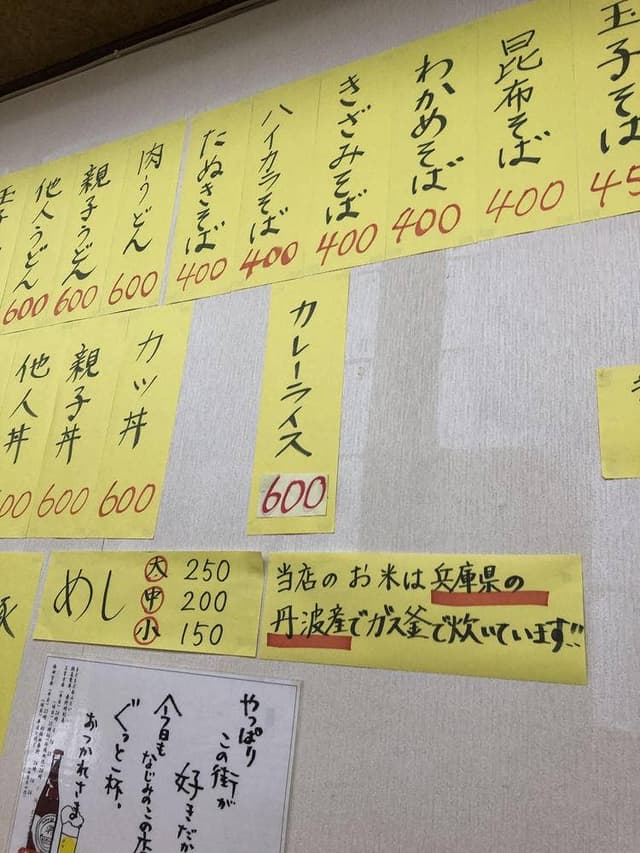 玉子そば
45
昆布そば
400
わかめそば
400
きざみそば
400
ハイカラそば
400
たぬきそば
400
肉うどん
600
親子うどん
600
他人うどん
600
玉子
カレーライス
600
カツ丼
600
親子丼
600
他人丼
00
めし
大 250
中 200
小 150
当店のお米は兵庫県の
丹波産でガス釜で炊いています!!
やっぱり
この街が
好きだか
今日も
なじみのこの
ぐっと一杯。
おつかれさま